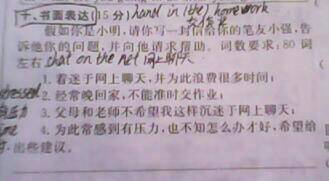 十、书面表达(15分) hand in (the) homework
交作业
假如你是小明,请你写一封信给你的笔友小强,告
诉他你的问题,并向他请求帮助。词数要求:80词
左右 chat on the net 网上聊天
1. 着迷于网上聊天,并为此浪费很多时间;
stressed
2. 经常晚回家,不能准时交作业;
压力
3. 父母和老师不希望我这样沉迷于网上聊天;
4. 为此常感到有压力,也不知怎么办才好,希望给
出些建议。